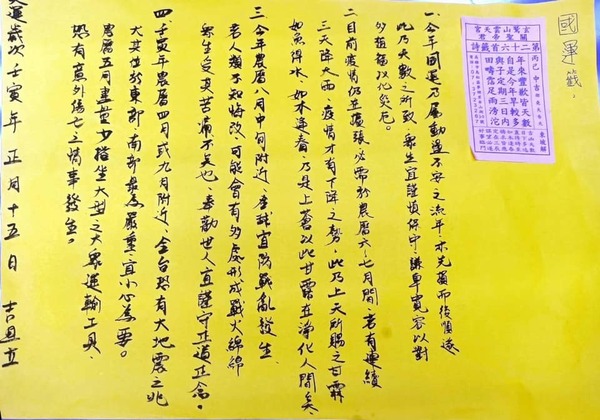 國運籤：
玄鷲山雲天宮
關聖帝君
第二十六首籤詩
丙巳 中吉
年來豐歉皆天數
自是今年旱較多
與子定期三日內
田疇霑足雨滂沱
東坡解
一、今年國運乃屬動盪不安之流年，亦先萬而後順遂
此乃天數之所致，眾生宜謹慎保守，謙卑寬容以對
竹植福以化災厄。
二、目前疫情仍在擴張，必需於農曆六、七月間，若有連續
三天降大雨，疫情才有下降之勢，此乃上天所賜之甘霖
如魚得水，如木逢春，乃是上蒼以此甘露在淨化人間矣
三、今年農曆八月中旬附近，全球宜防戰亂發生，
若人類不知悔改，可能會有多處形成戰火綿綿
眾生受其苦痛不矣也，奉勸世人宜謹守正道正念。
四、壬寅年農曆四月或九月附近，全台恐有大地震之兆
尤其位於東部、南部最為嚴重，宜小心為要。
農曆五月盡量少搭坐大型之大眾運輸工具，
恐有意外傷亡之情事發生。
天運歲次壬寅年正月十五日 吉旦立